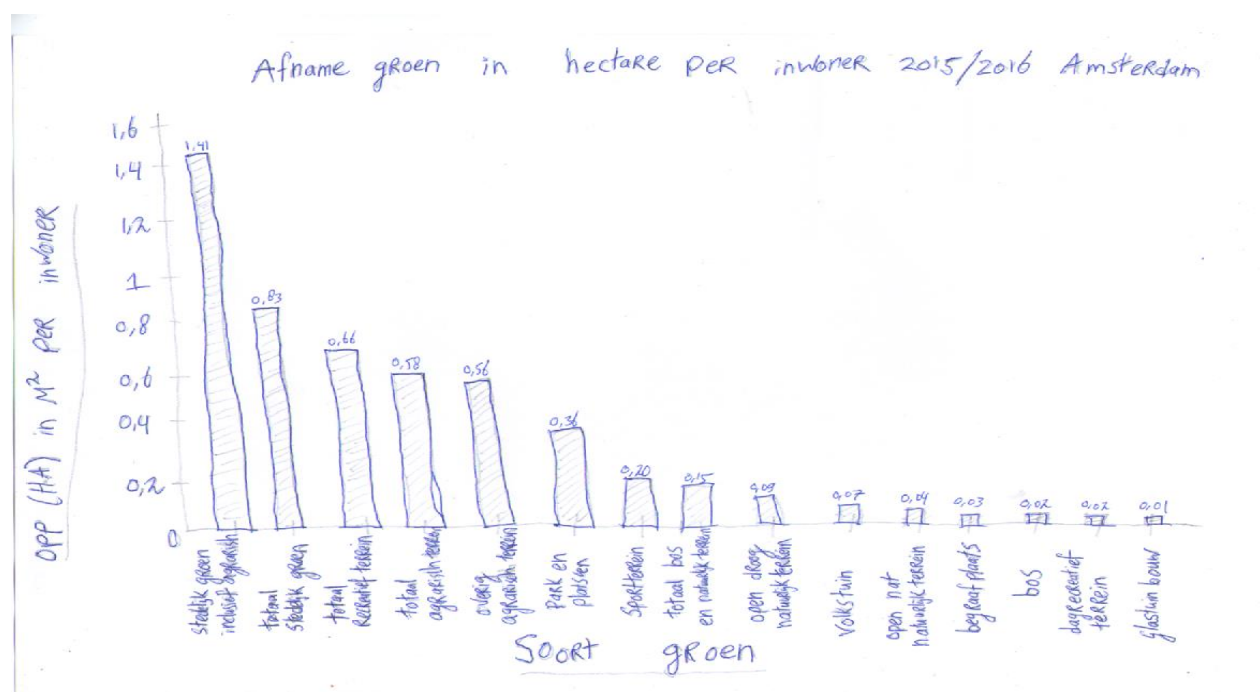 Afname groen in hectare per inwoner 2015/2016 Amsterdam
OPP (HA) in M² per inwoner
1,6
1,4
1,2
1
0,8
0,6
0,4
0,2
0
1,41
0,83
0,66
0,58
0,56
0,36
0,20
0,15
0,09
0,07
0,04
0,03
0,02
0,02
0,01
stedelijk groen
inclusief agrarisch
totaal
stedelijk groen
totaal
Recreatief terrein
totaal
agrarisch terrein
overig
agrarisch terrein
Park en
plantsoen
Sportterrein
totaal bos
en natuurlijk terrein
open droog
natuurlijk terrein
Volkstuin
open nat
natuurlijk terrein
begraafplaats
bos
dagrecreatief
terrein
glastuin bouw
Soort groen